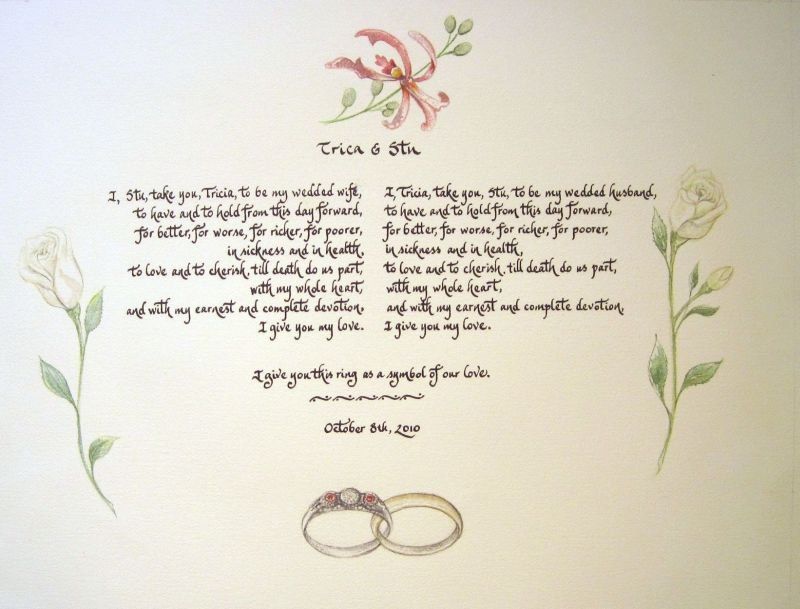 Trica & Stu
I, Stu, take you, Tricia, to be my wedded wife,
to have and to hold from this day forward,
for better, for worse, for richer, for poorer,
in sickness and in health,
to love and to cherish, till death do us part,
with my whole heart,
and with my earnest and complete devotion,
I give you my love.
I, Tricia, take you, Stu, to be my wedded husband,
to have and to hold from this day forward,
for better, for worse, for richer, for poorer,
in sickness and in health,
to love and to cherish, till death do us part,
with my whole heart,
and with my earnest and complete devotion,
I give you my love.
I give you this ring as a symbol of our love.
October 8th, 2010